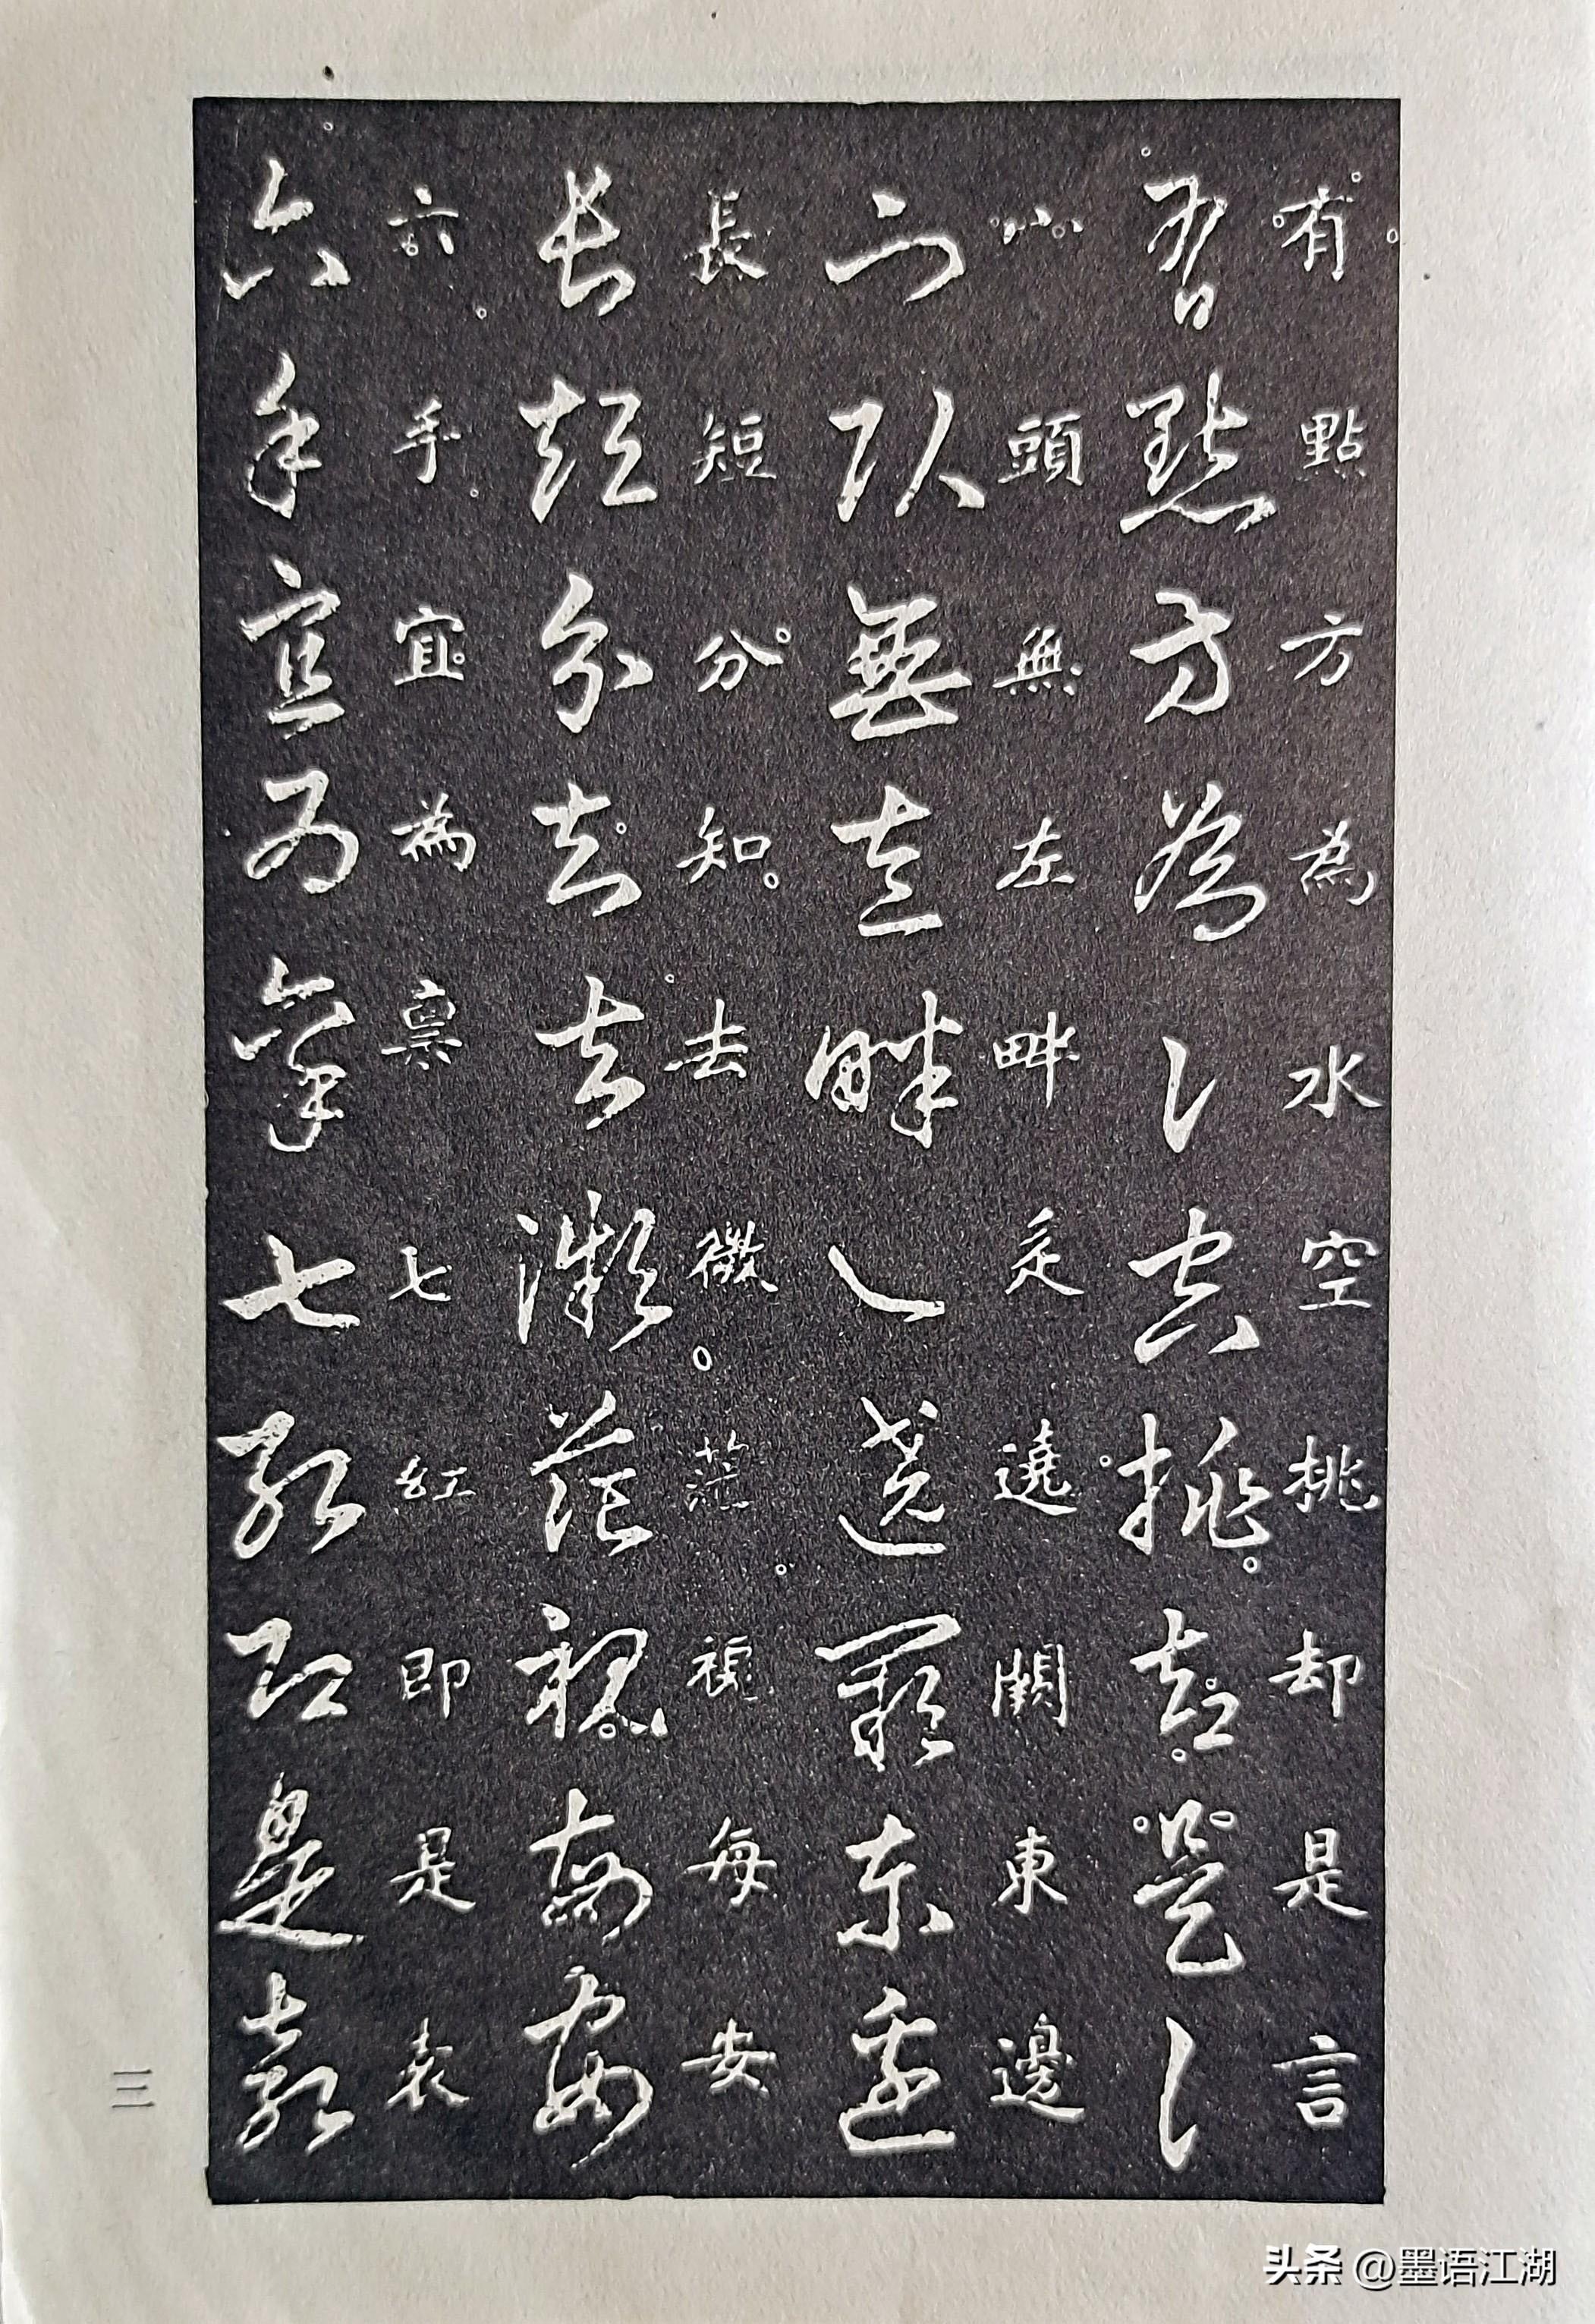 有點方為水空挑却是言
有點方為水空挑却是言
宀頭無左畔辵遶闕東邊
宀頭無左畔辶遶闕東邊
長短分知去微茫視每安
長短分知去微茫視每安
六手宜為禀七紅即是袁
六手宜為禀七紅即是袁
三
头条 @墨语江湖